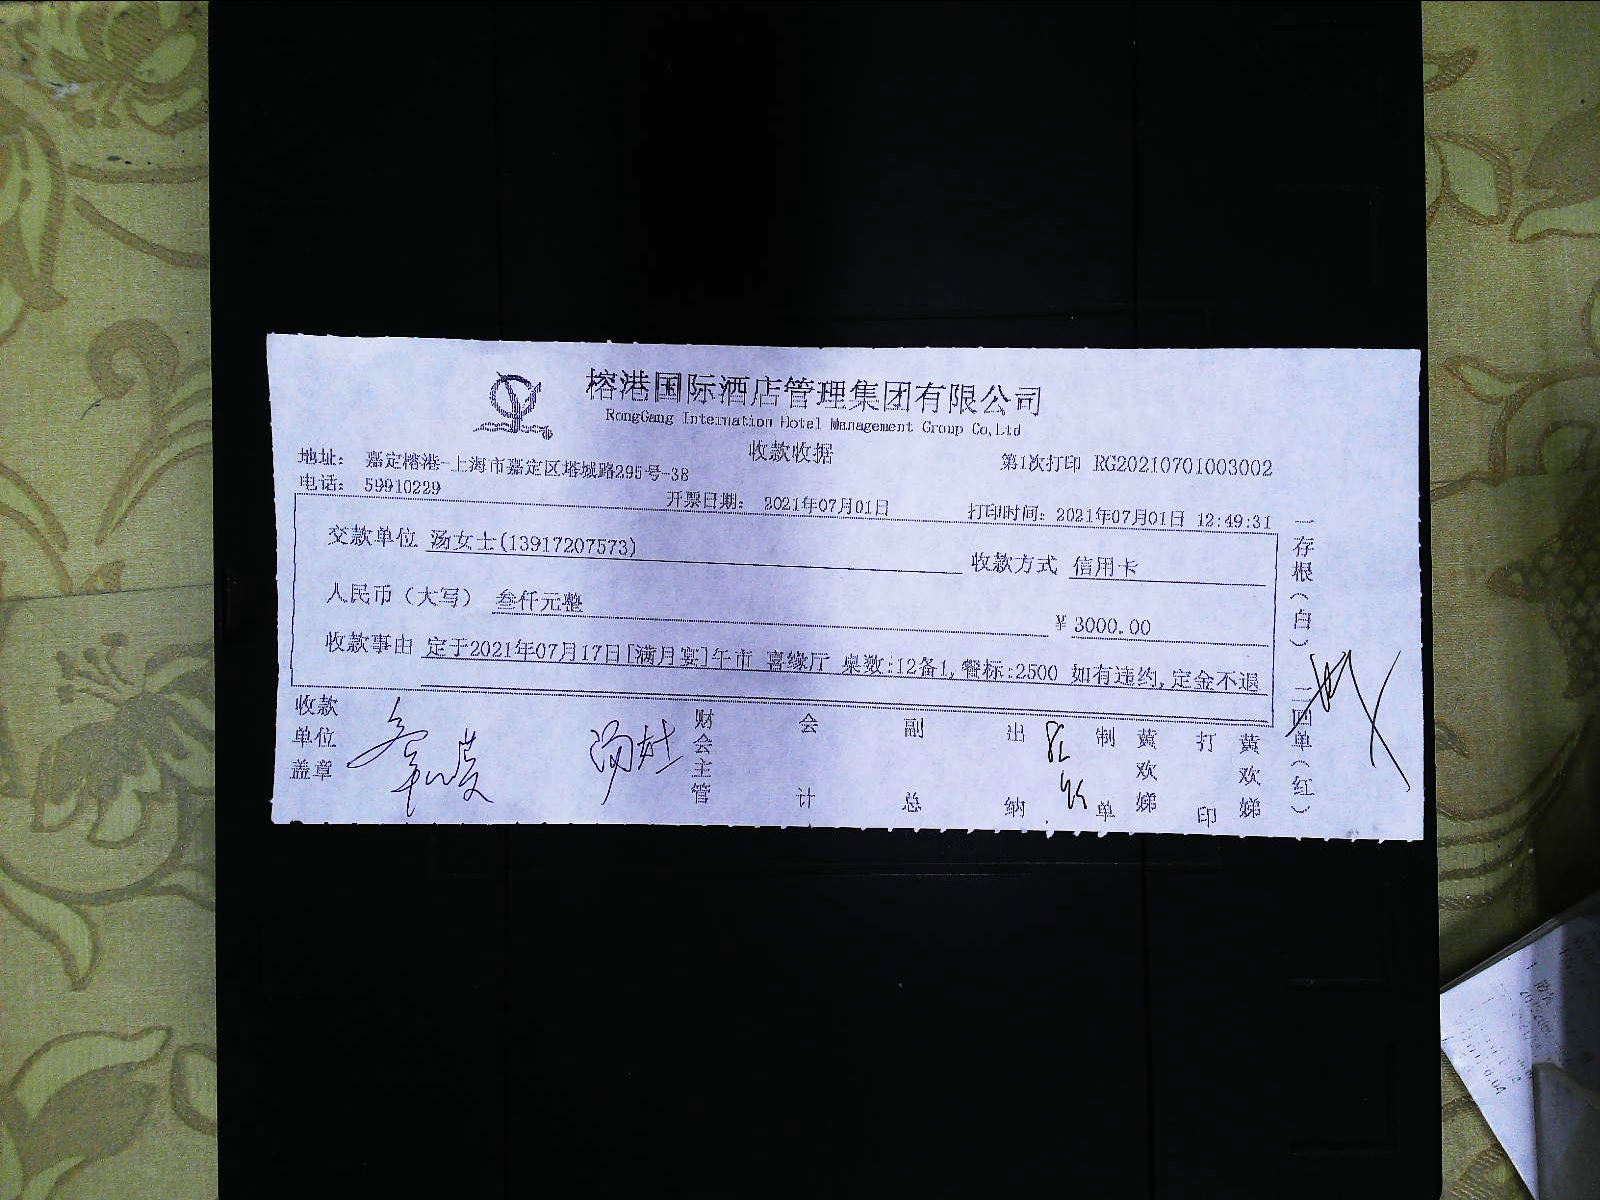 榕港国际酒店管理集团有限公司
RongGang Internation Hotel Management Group Co,Ltd
收款收据
地址： 嘉定榕港-上海市嘉定区塔城路295号-38
第1次打印 RG20210701003002
电话： 59910229
开票日期： 2021年07月01日
打印时间：2021年07月01日 12:49:31
交款单位 汤女士(13917207573)
收款方式 信用卡
人民币（大写） 叁仟元整
¥ 3000.00
收款事由 定于2021年07月17日[满月宴]午市 喜缘厅 桌数:12备1,餐标:2500 如有违约,定金不退
收款单位盖章
财会主管
会计
副总
出纳
制单 黄欢娣
打印 黄欢娣
一存根（白） 二回单（红）